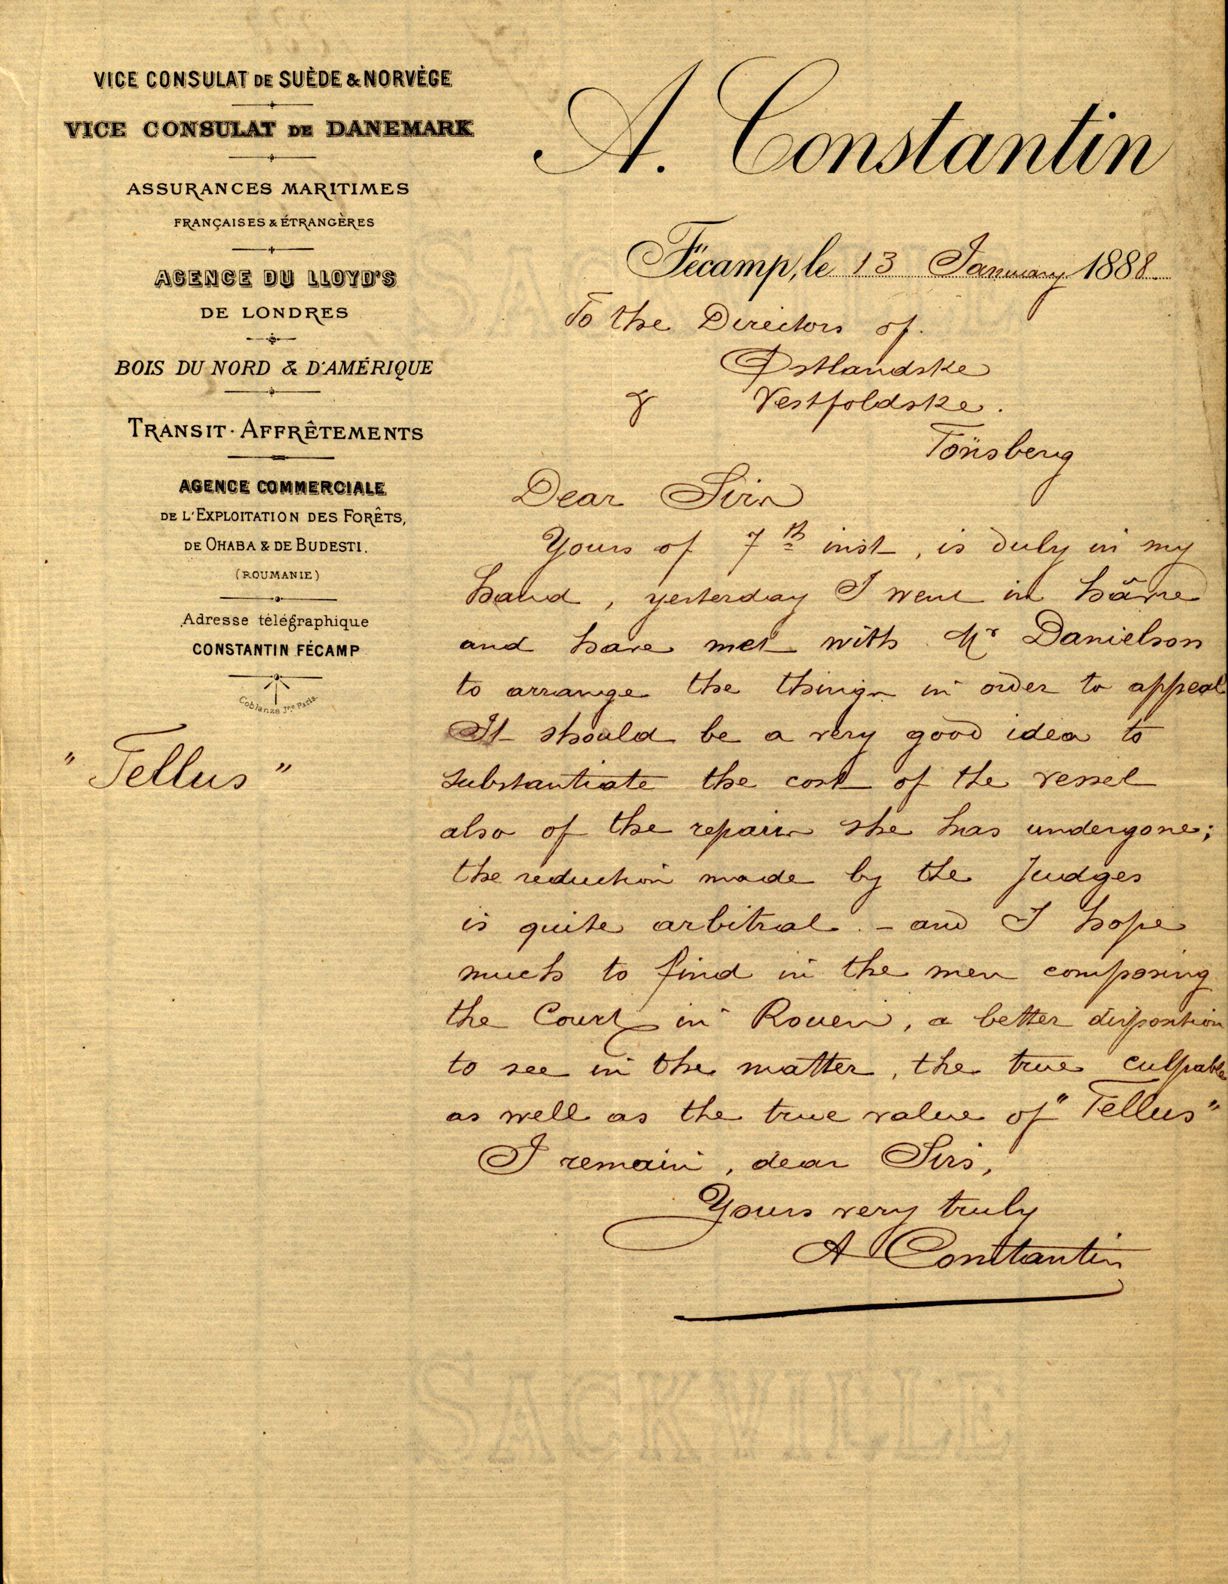 VICE CONSULAT DE SUÈDE & NORVÈGE
VICE CONSULAT DE DANEMARK
ASSURANCES MARITIMES
FRANÇAISES & ÉTRANGÈRES
AGENCE DU LLOYD'S
DE LONDRES
BOIS DU NORD & D'AMÉRIQUE
TRANSIT - AFFRÊTEMENTS
AGENCE COMMERCIALE
DE L'EXPLOITATION DES FORÊTS,
DE OHABA & DE BUDESTI.
(ROUMANIE)
Adresse télégraphique
CONSTANTIN FÉCAMP
Coblanze Jne Paris
"Tellus"
A. Constantin
Fécamp, le 13 January 1888.
To the Directors of
Østlandske
& Vestfoldske.
Tönsberg
Dear Sirs
Yours of 7th inst, is duly in my
hand, yesterday I went in hâvre
and have met with Mr Danielson
to arrange the things in order to appeal
It should be a very good idea to
substantiate the cost of the vessel
also of the repairs she has undergone;
the reduction made by the Judges
is quite arbitral. - and I hope
much to find in the men composing
the Court in Rouen, a better disposition
to see in the matter, the true culpable
as well as the true value of "Tellus"
I remain, dear Sirs,
Yours very truly
A Constantin
SACKVILLE